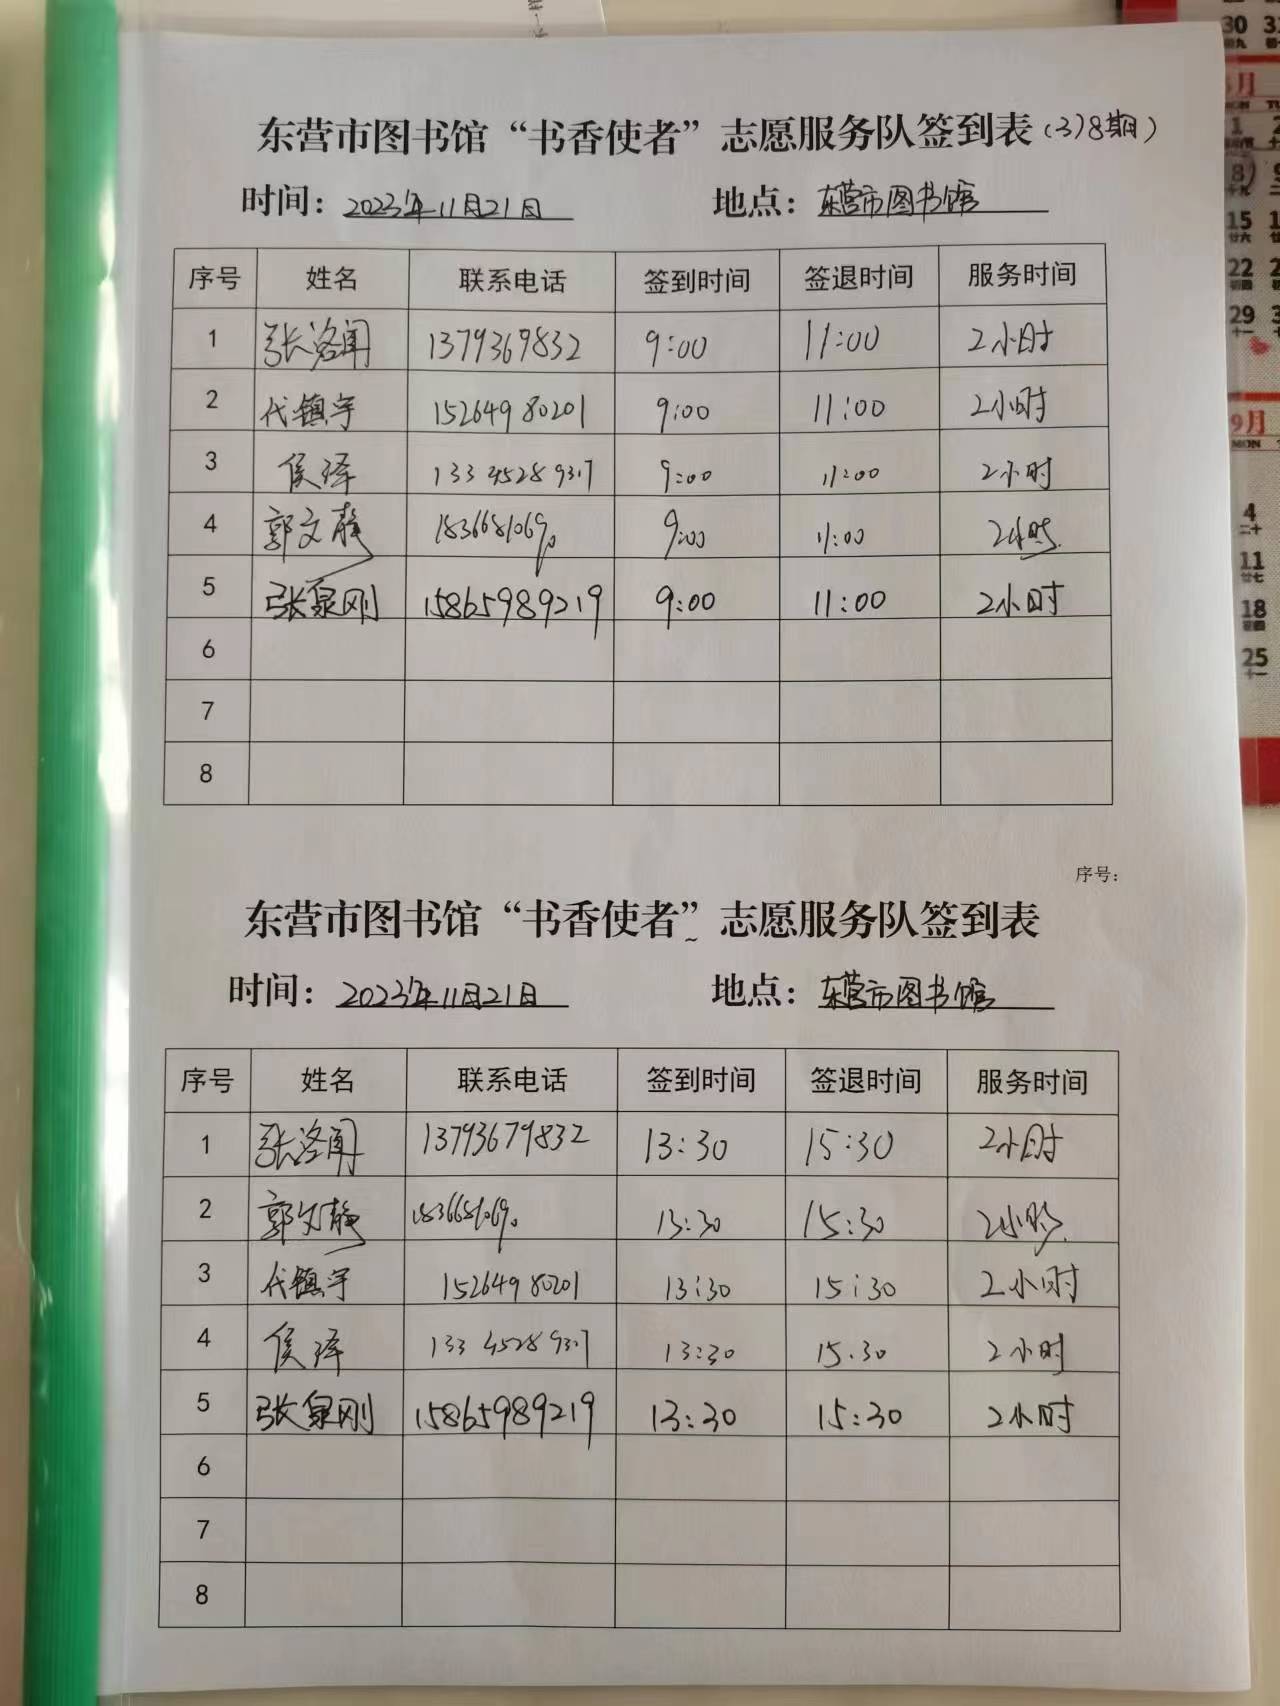 东营市图书馆“书香使者”志愿服务队签到表(3)8期)
时间：2023年11月21日 地点：东营市图书馆
序号 姓名 联系电话 签到时间 签退时间 服务时间
1 张洛闻 1379369832 9:00 11:00 2小时
2 代镇宇 15264980201 9:00 11:00 2小时
3 侯泽 13345289317 9:00 11:00 2小时
4 郭文静 9:00 11:00 2小时
5 张泉刚 15865989219 9:00 11:00 2小时
6
7
8
序号：
东营市图书馆“书香使者”志愿服务队签到表
时间：2023年11月21日 地点：东营市图书馆
序号 姓名 联系电话 签到时间 签退时间 服务时间
1 张洛闻 13793679832 13:30 15:30 2小时
2 郭文静 13:30 15:30 2小时
3 代镇宇 15264980201 13:30 15:30 2小时
4 侯泽 13345289317 13:30 15.30 2小时
5 张泉刚 15865989219 13:30 15:30 2小时
6
7
8
30
月
1
8
15
22
29
9月
MON
4
11
18
25